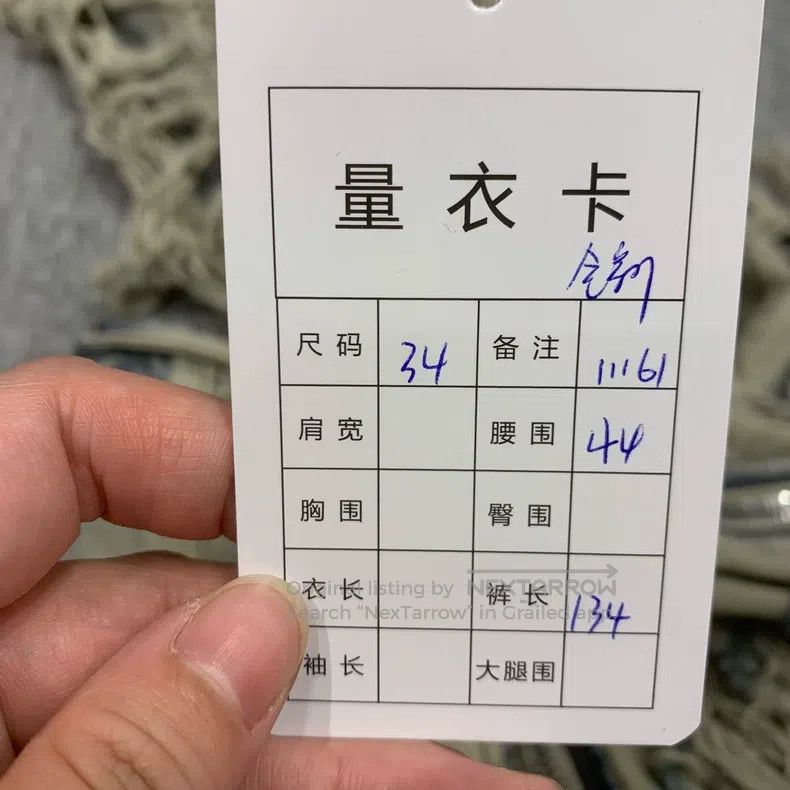 量衣卡
全新
尺码 34 备注 11161
肩宽 腰围 44
胸围 臀围
衣长 裤长 134
Original listing by NEXTARROW
Search "NexTarrow" in Grailed app
袖长 大腿围